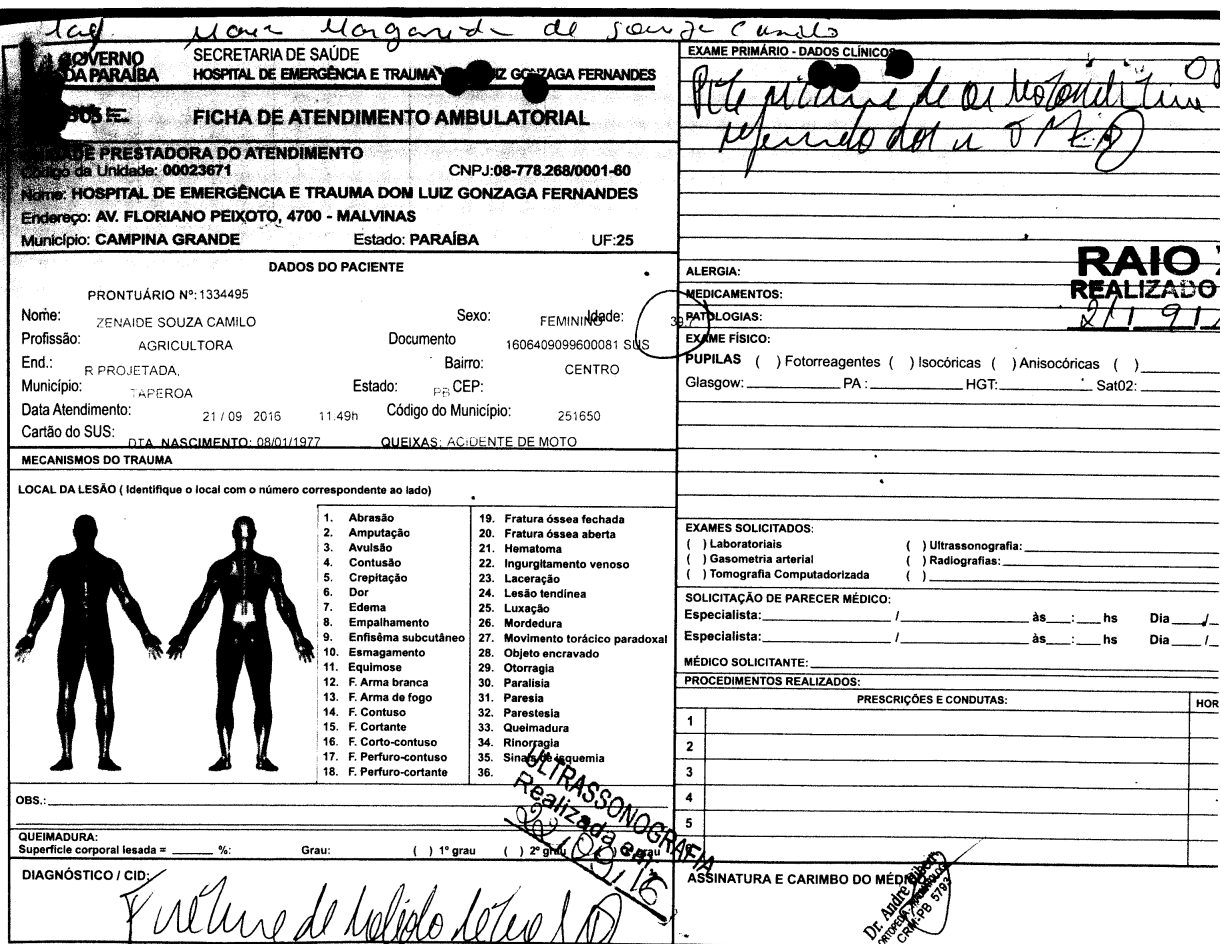 Maria Margarida de Souza Camilo
GOVERNO
DA PARAÍBA
SECRETARIA DE SAÚDE
HOSPITAL DE EMERGÊNCIA E TRAUMA IZ GONZAGA FERNANDES
SUS
FICHA DE ATENDIMENTO AMBULATORIAL
E PRESTADORA DO ATENDIMENTO
Código da Unidade: 00023671 CNPJ:08-778.268/0001-60
Nome: HOSPITAL DE EMERGÊNCIA E TRAUMA DOM LUIZ GONZAGA FERNANDES
Endereço: AV. FLORIANO PEIXOTO, 4700 - MALVINAS
Município: CAMPINA GRANDE Estado: PARAÍBA UF:25
DADOS DO PACIENTE
PRONTUÁRIO Nº: 1334495
Nome: ZENAIDE SOUZA CAMILO Sexo: FEMININO Idade: 39.7
Profissão: AGRICULTORA Documento 1606409099600081 SUS
End.: R PROJETADA, Bairro: CENTRO
Município: TAPEROA Estado: PB CEP:
Data Atendimento: 21 / 09 2016 11.49h Código do Município: 251650
Cartão do SUS: DTA NASCIMENTO: 08/01/1977 QUEIXAS: ACIDENTE DE MOTO
MECANISMOS DO TRAUMA
LOCAL DA LESÃO ( Identifique o local com o número correspondente ao lado)
1. Abrasão
2. Amputação
3. Avulsão
4. Contusão
5. Crepitação
6. Dor
7. Edema
8. Empalhamento
9. Enfisêma subcutâneo
10. Esmagamento
11. Equimose
12. F. Arma branca
13. F. Arma de fogo
14. F. Contuso
15. F. Cortante
16. F. Corto-contuso
17. F. Perfuro-contuso
18. F. Perfuro-cortante
19. Fratura óssea fechada
20. Fratura óssea aberta
21. Hematoma
22. Ingurgitamento venoso
23. Laceração
24. Lesão tendínea
25. Luxação
26. Mordedura
27. Movimento torácico paradoxal
28. Objeto encravado
29. Otorragia
30. Paralisia
31. Paresia
32. Parestesia
33. Queimadura
34. Rinorragia
35. Sinais de isquemia
36.
OBS.:
QUEIMADURA:
Superfície corporal lesada = %: Grau: ( ) 1º grau ( ) 2º grau ( ) 3º grau
ULTRASSONOGRAFIA
Realizada em
22/09/16
DIAGNÓSTICO / CID:
de
EXAME PRIMÁRIO - DADOS CLÍNICOS
de
ALERGIA:
MEDICAMENTOS:
PATOLOGIAS:
RAIO
REALIZADO
21/9/
EXAME FÍSICO:
PUPILAS ( ) Fotorreagentes ( ) Isocóricas ( ) Anisocóricas ( )
Glasgow: PA : HGT: Sat02:
EXAMES SOLICITADOS:
( ) Laboratoriais ( ) Ultrassonografia:
( ) Gasometria arterial ( ) Radiografias:
( ) Tomografia Computadorizada ( )
SOLICITAÇÃO DE PARECER MÉDICO:
Especialista: / às : hs Dia /
Especialista: / às : hs Dia /
MÉDICO SOLICITANTE:
PROCEDIMENTOS REALIZADOS:
PRESCRIÇÕES E CONDUTAS: HOR
1
2
3
4
5
ASSINATURA E CARIMBO DO MÉDICO
Dr. André
CRM-PB 5793